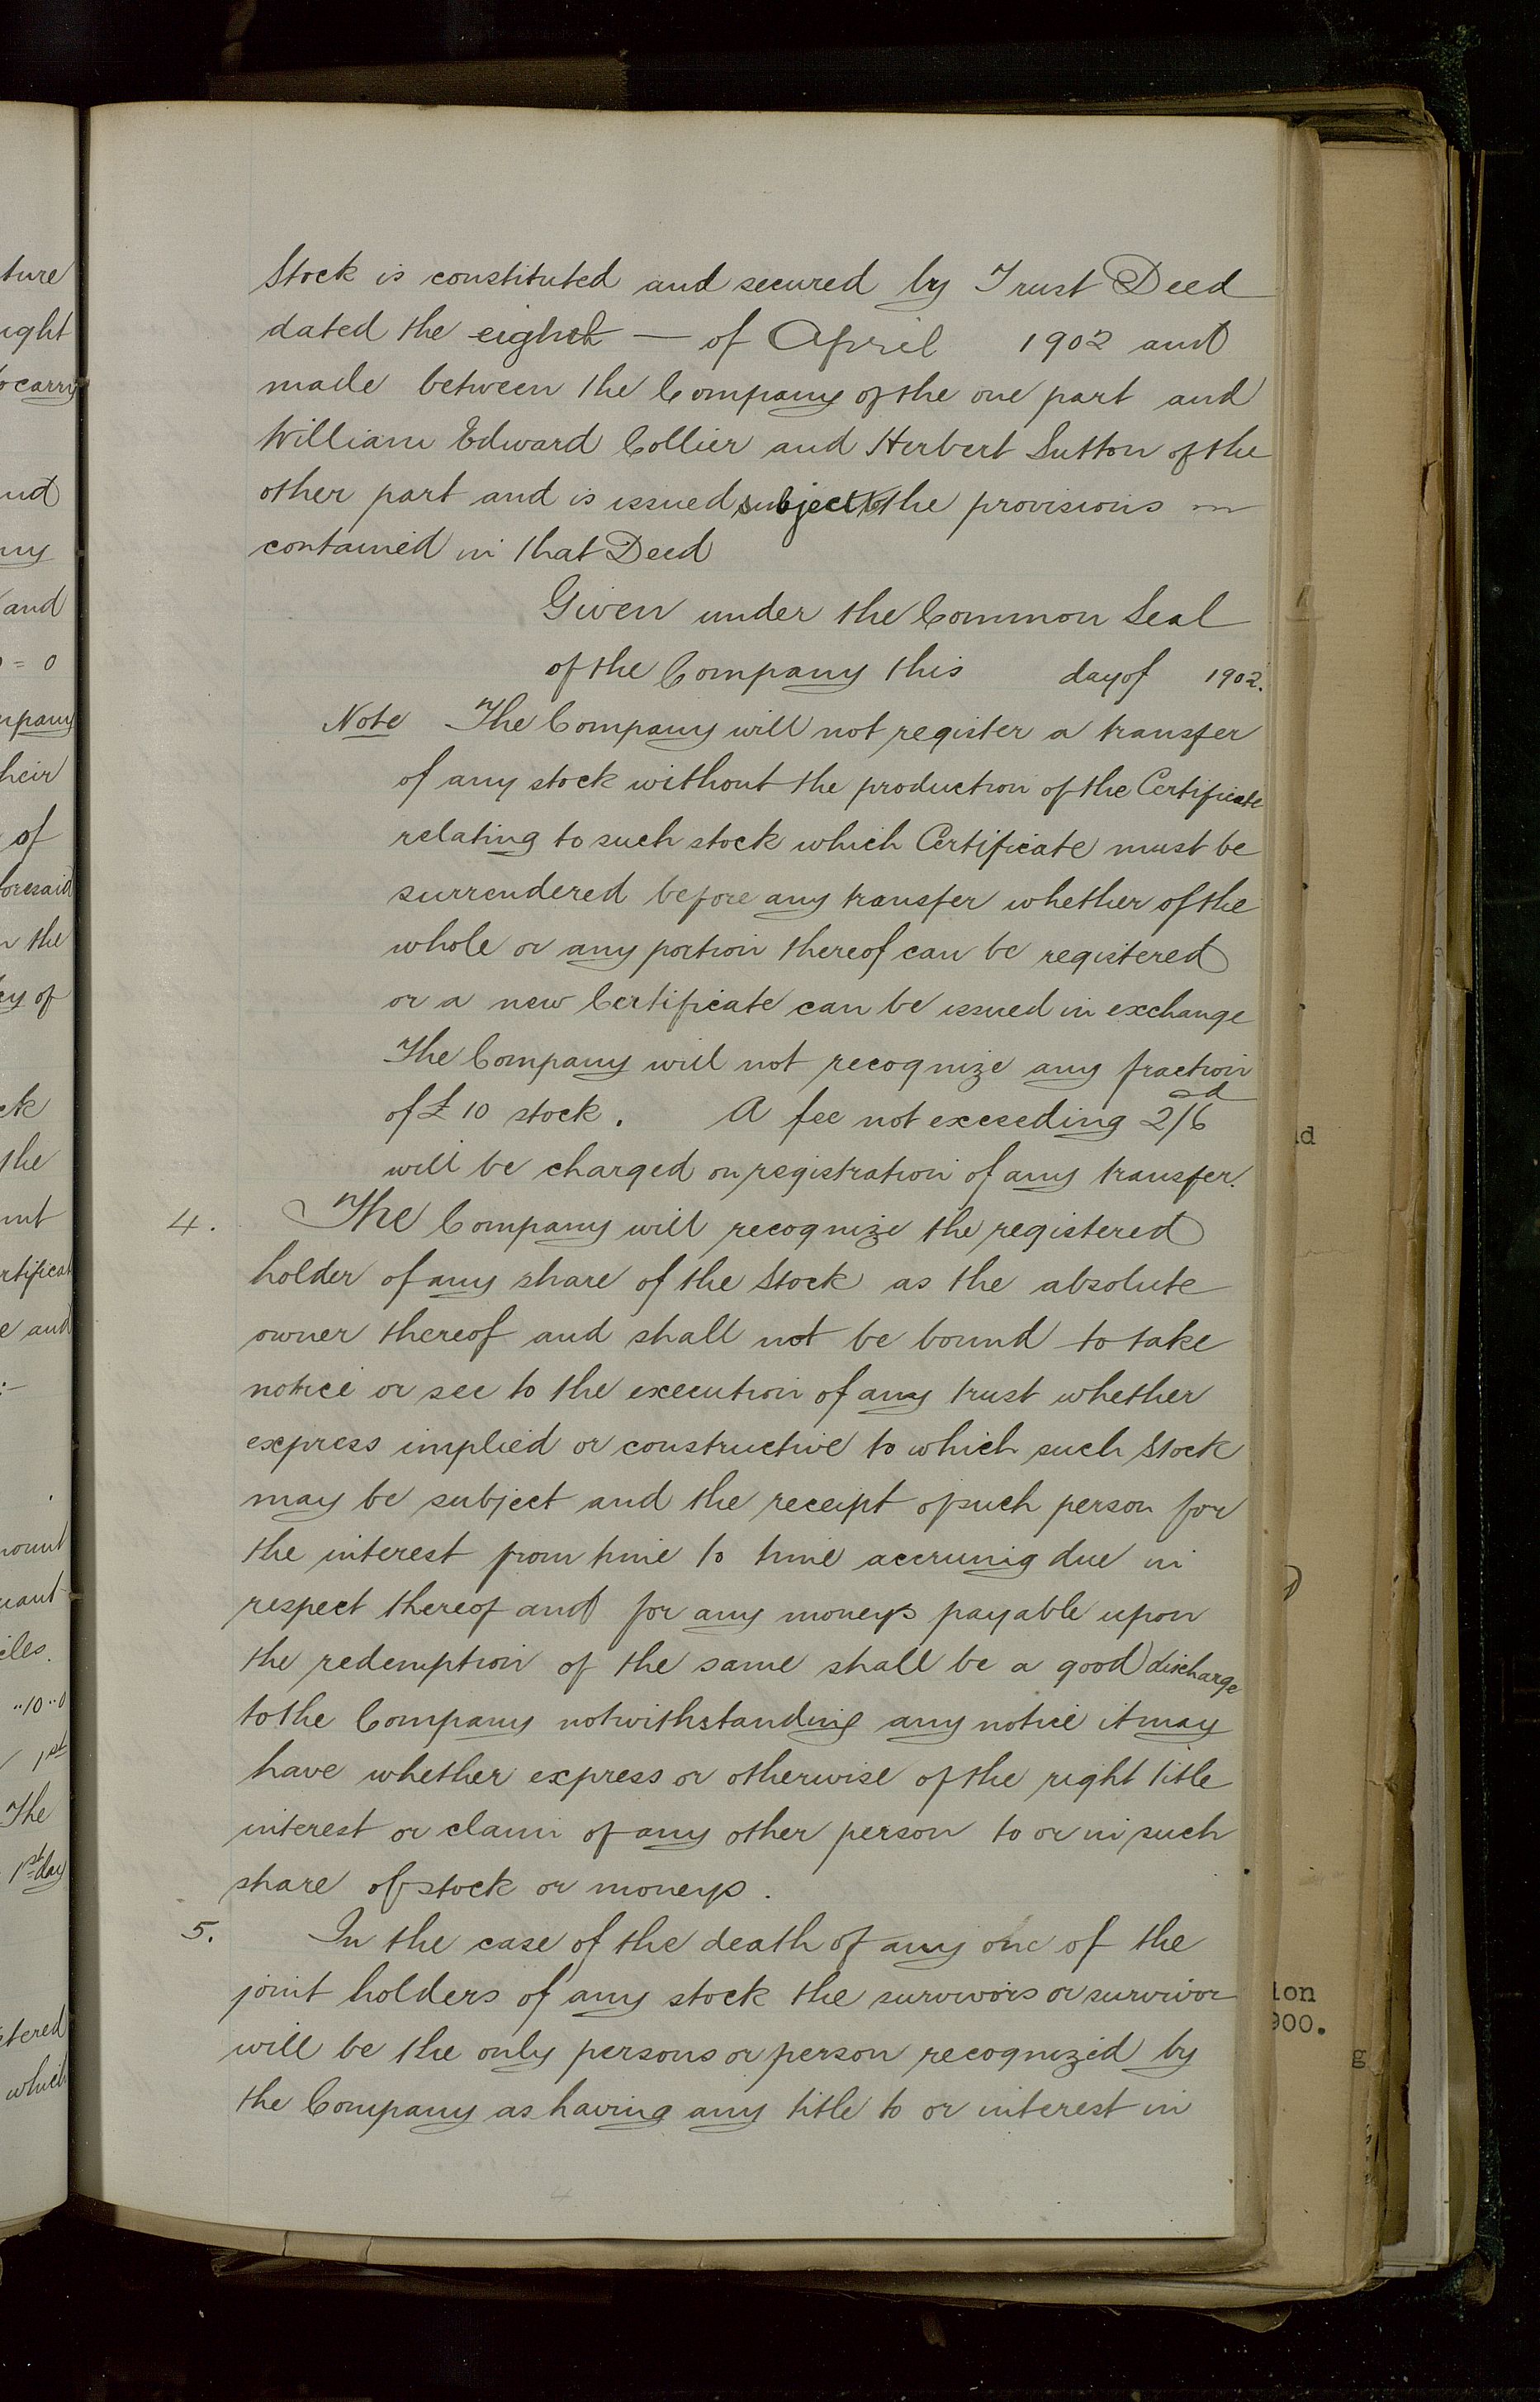 Stock is constituted and secured by Trust Deed
dated the eighth — of April 1902 and
made between the Company of the one part and
William Edward Collier and Herbert Sutton of the
other part and is issued subject to the provisions
contained in that Deed
Given under the Common Seal
of the Company this day of 1902.
Note The Company will not register a transfer
of any stock without the production of the Certificate
relating to such stock which Certificate must be
surrendered before any transfer whether of the
whole or any portion thereof can be registered
or a new Certificate can be issued in exchange
The Company will not recognize any fraction
of £10 stock. A fee not exceeding 2s/6d
will be charged on registration of any transfer.
4. The Company will recognize the registered
holder of any share of the Stock as the absolute
owner thereof and shall not be bound to take
notice or see to the execution of any trust whether
express implied or constructive to which such Stock
may be subject and the receipt of such person for
the interest from time to time accruing due in
respect thereof and for any moneys payable upon
the redemption of the same shall be a good discharge
to the Company notwithstanding any notice it may
have whether express or otherwise of the right title
interest or claim of any other person to or in such
share of stock or moneys.
5. In the case of the death of any one of the
joint holders of any stock the survivors or survivor
will be the only persons or person recognized by
the Company as having any title to or interest in